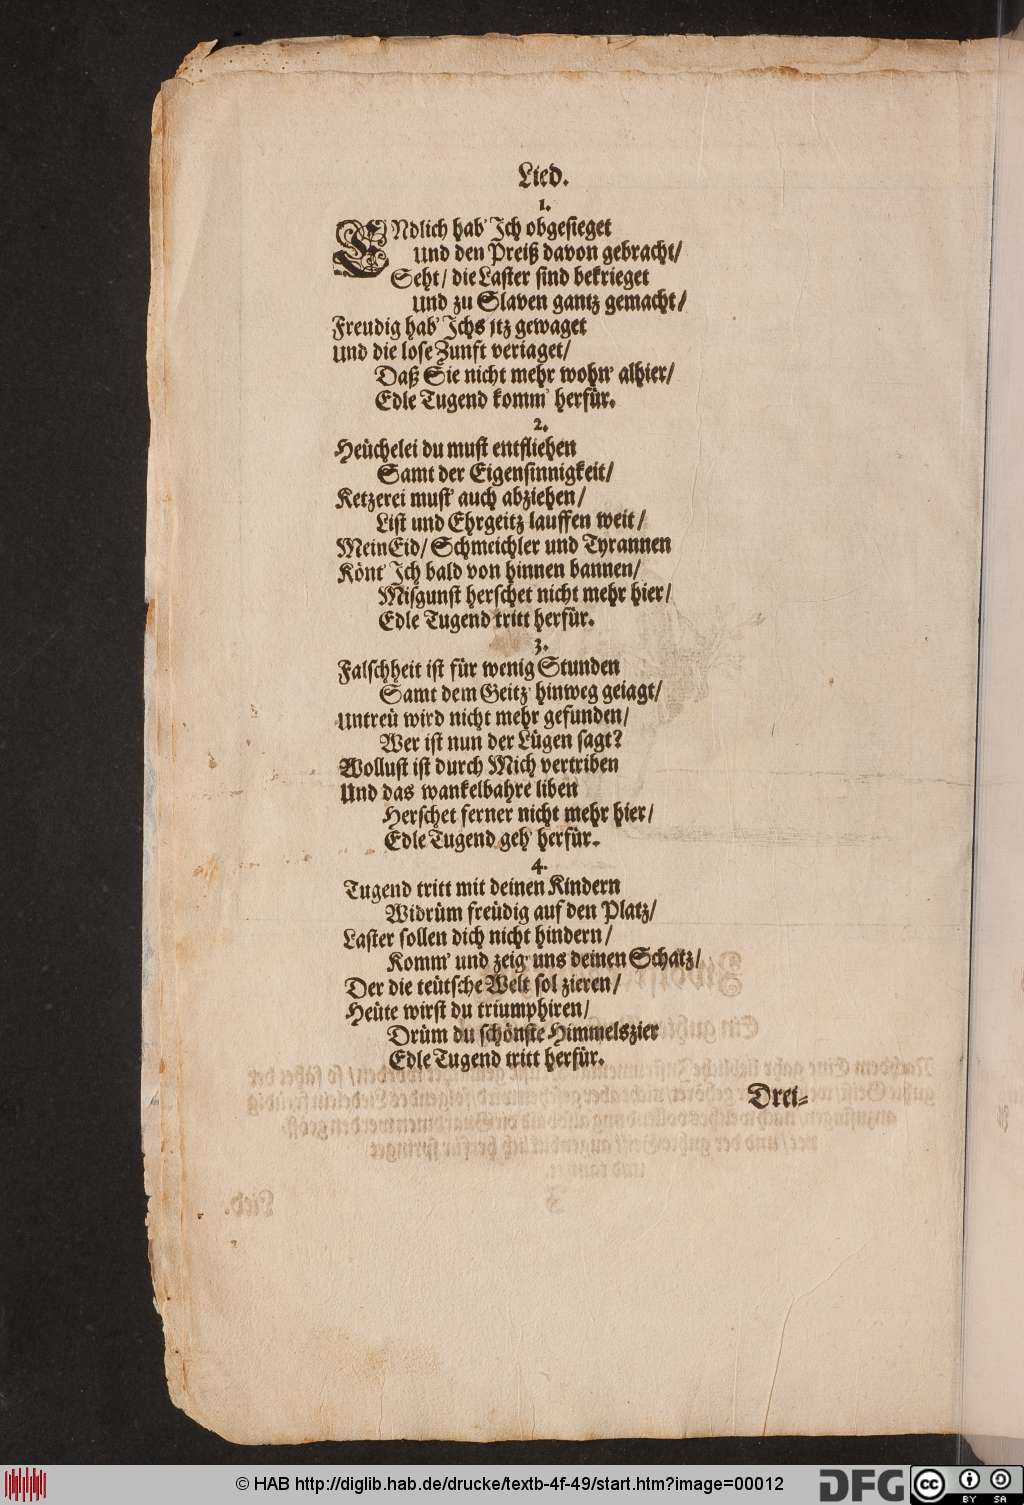 Lied.
1.
ENdlich hab' Jch obgesieget
Und den Preiß davon gebracht/
Seht/ die Laster sind bekrieget
Und zu Slaven gantz gemacht/
Freudig hab' Jchs itz gewaget
Und die lose Zunft veriaget/
Daß Sie nicht mehr wohn' alhier/
Edle Tugend komm' herfür.
2.
Heüchelei du must entfliehen
Samt der Eigensinnigkeit/
Ketzerei must' auch abziehen/
List und Ehrgeitz lauffen weit/
MeinEid/ Schmeichler und Tyrannen
Könt' Jch bald von hinnen bannen/
Misgunst herschet nicht mehr hier/
Edle Tugend tritt herfür.
3.
Falschheit ist für wenig Stunden
Samt dem Geitz' hinweg geiagt/
Untreü wird nicht mehr gefunden/
Wer ist nun der Lügen sagt?
Wollust ist durch Mich vertriben
Und das wankelbahre liben
Herschet ferner nicht mehr hier/
Edle Tugend geh' herfür.
4.
Tugend tritt mit deinen Kindern
Widrüm freüdig auf den Platz/
Laster sollen dich nicht hindern/
Komm' und zeig' uns deinen Schatz/
Der die teütsche Welt sol zieren/
Heüte wirst du triumphiren/
Drüm du schönste Himmelszier
Edle Tugend tritt herfür.
Drei=
© HAB http://diglib.hab.de/drucke/textb-4f-49/start.htm?image=00012
DFG
cc
BY SA